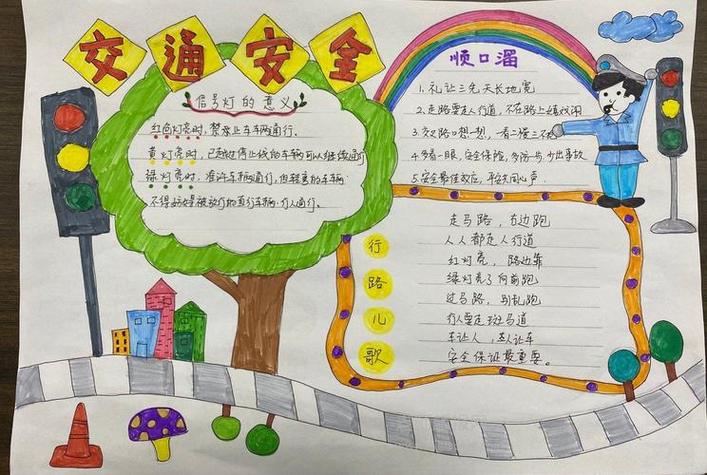 交通安全
信号灯的意义
红色灯亮时，禁止车辆通行。
黄灯亮时，已越过停止线的车辆可以继续通行
绿灯亮时，准许车辆通行，但转弯的车辆
不得妨碍被放行的直行车辆、行人通行。
顺口溜
1. 礼让三先天长地宽
2. 走路要走人行道，不在路上嬉戏闹
3. 交叉路口想一想，看二慢三不抢
4. 多看一眼，安全保险，多防一步，少出事故
5. 安全最佳效应，平安共同心声
行路儿歌
走马路，右边跑
人人都走人行道
红灯亮，路边靠
绿灯亮了向前跑
过马路，别乱跑
行人要走斑马道
车让人，人让车
安全保证最重要。